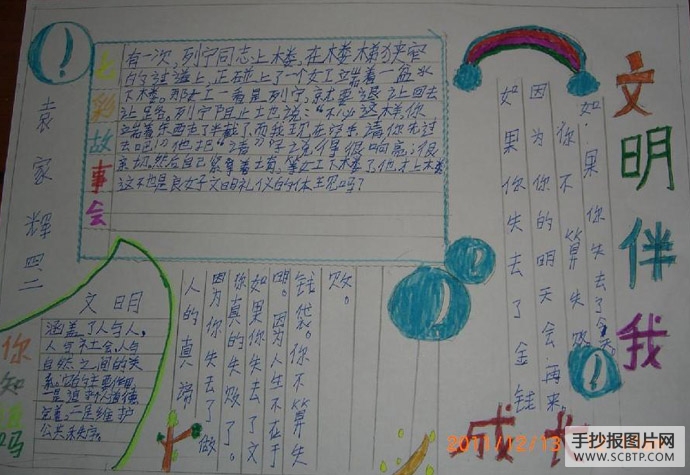 文明伴我
成长
名彩故事会
有一次,列宁同志上楼,在楼梯狭窄
的过道上,正碰上了一个女工端着一盆水
下楼。那女工一看是列宁,就要退让回去
让路。列宁阻止她说:"不必这样,你
端着东西走了半截了,而我现在空手,请你先过
去吧!"他把"请"字说得很响亮,很
亲切。然后自己紧靠着墙,等女工下楼了,他才上楼。
这不也是良好文明礼仪的体现吗?
袁家辉
如果你失去了今天,
你不算失败,
因为你的明天会再来
如果你失去了金钱
钱袋。你不算失败。
因为人生不在于
如果你失去了文明。
你真的失败了。
因为你失去了做
人的真谛
你知道吗
文明
涵盖了人与人,
人与社会、人与
自然之间的关
系。它的主要作用,
一是追求个人道德
完善,一是维护
公共秩序。
2011/12/13
手抄报图片网
WWW.SCBTP.COM